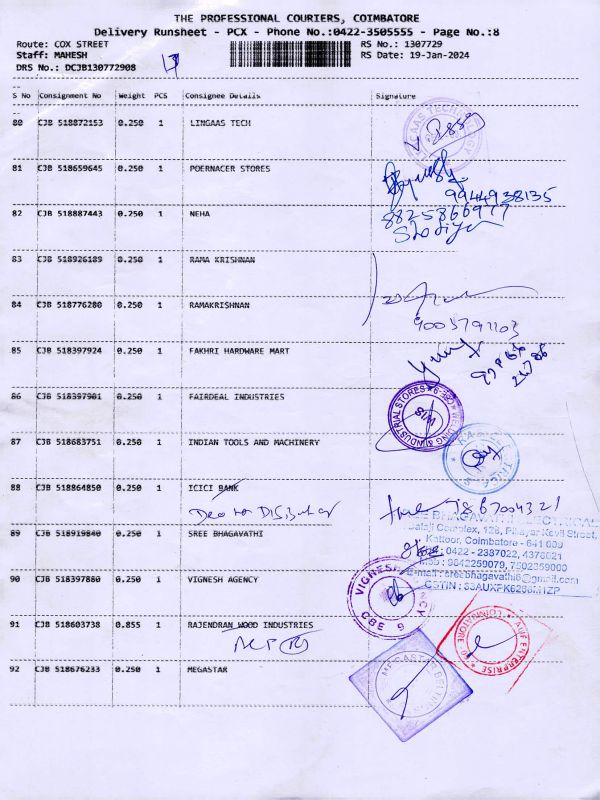 THE PROFESSIONAL COURIERS, COIMBATORE
Delivery Runsheet - PCX - Phone No.:0422-3505555 - Page No.:8
Route: COX STREET RS No.: 1307729
Staff: MAHESH RS Date: 19-Jan-2024
DRS No.: DCJB130772908 17
S No Consignment No Weight PCS Consignee Details Signature
80 CJB 518872153 0.250 1 LINGAAS TECH
81 CJB 518659645 0.250 1 POERNACER STORES
9944938135
82 CJB 518887443 0.250 1 NEHA 8825866977
83 CJB 518926189 0.250 1 RAMA KRISHNAN
84 CJB 518776280 0.250 1 RAMAKRISHNAN
9003792203
85 CJB 518397924 0.250 1 FAKHRI HARDWARE MART
86 CJB 518397901 0.250 1 FAIRDEAL INDUSTRIES
WELDING & INDUSTRIAL STORES CBE-9
W/S
87 CJB 518683751 0.250 1 INDIAN TOOLS AND MACHINERY
88 CJB 518864850 0.250 1 ICICI BANK
7867004321
89 CJB 518919840 0.250 1 SREE BHAGAVATHI
SREE BHAGAVATHI ELECTRICAL
Balaji Complex, 128, Pillayar Kovil Street,
Kattoor, Coimbatore - 641 009
0422 - 2387022, 4378021
Mob : 9842259079, 7502359000
E-mail : sreebhagavathi6@gmail.com
GSTIN : 33AUXPK6296M1ZP
90 CJB 518397880 0.250 1 VIGNESH AGENCY
VIGNESH AGENCY CBE 9
91 CJB 518603738 0.855 1 RAJENDRAN WOOD INDUSTRIES
ENTERPRISE COIMBATORE
92 CJB 518676233 0.250 1 MEGASTAR